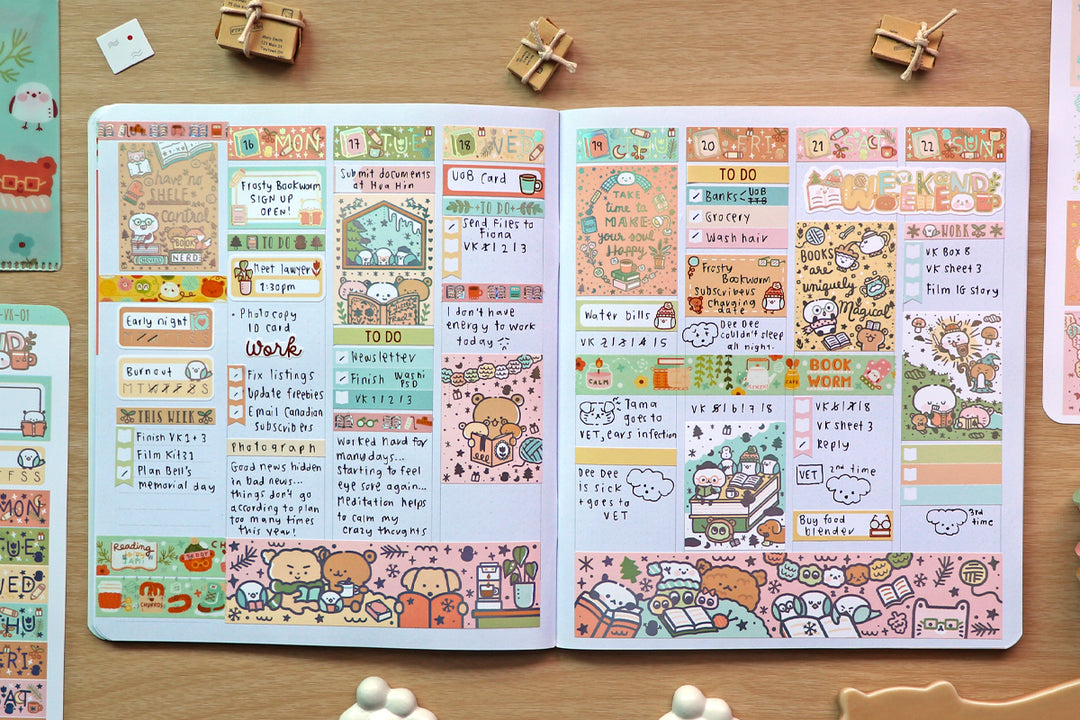 Molly Smith
have no
SHELF
control
BOOKS
NERD
Early night
Burnout
M T W T F S S
THIS WEEK
Finish VK 1 + 3
Film Kit 31
Plan Bell's
memorial day
Reading
JAM!
CHURROS
16 MON
Frosty Bookworm
SIGN UP
OPEN!
TO DO
Meet lawyer
1:30pm
• Photocopy
ID card
Work
Fix listings
Update freebies
Email Canadian
Subscribers
Photograph
Good news hidden
in bad news...
things don't go
according to plan
too many times
this year!
17 TUE
Submit documents
at Hua Hin
TO DO
Newsletter
Finish Washi
PSD
VK 1 2 1 3
Worked hard for
many days...
starting to feel
eye sore again...
Meditation helps
to calm my
crazy thoughts
18 WED
UOB Card
TO DO
Send files to
Fiona
I don't have
energy to work
today
19
TAKE
time to
MAKE
your soul
Happy
Water bills
CALM
Tama
goes to
VET, ears infection
Dee Dee
is sick
+ goes to
VET
20 FRI
TO DO
Banks < UOB
TTB
Grocery
Wash hair
Frosty
Bookworm
Subscribers
changing
date
Dee Dee
couldn't sleep
all night.
VK 5 / 6 / 7 / 8
21 SAT
WEEKEND
BOOKS
are
uniquely
Magical
CAFE
BOOK
WORM
VK sheet 3
Reply
VET
2nd time
Buy food
blender
22 SUN
WORK
VK Box 8
VK sheet 3
Film IG story
3rd
time
VK-01
MON
UE
VED
HU
RI
AT